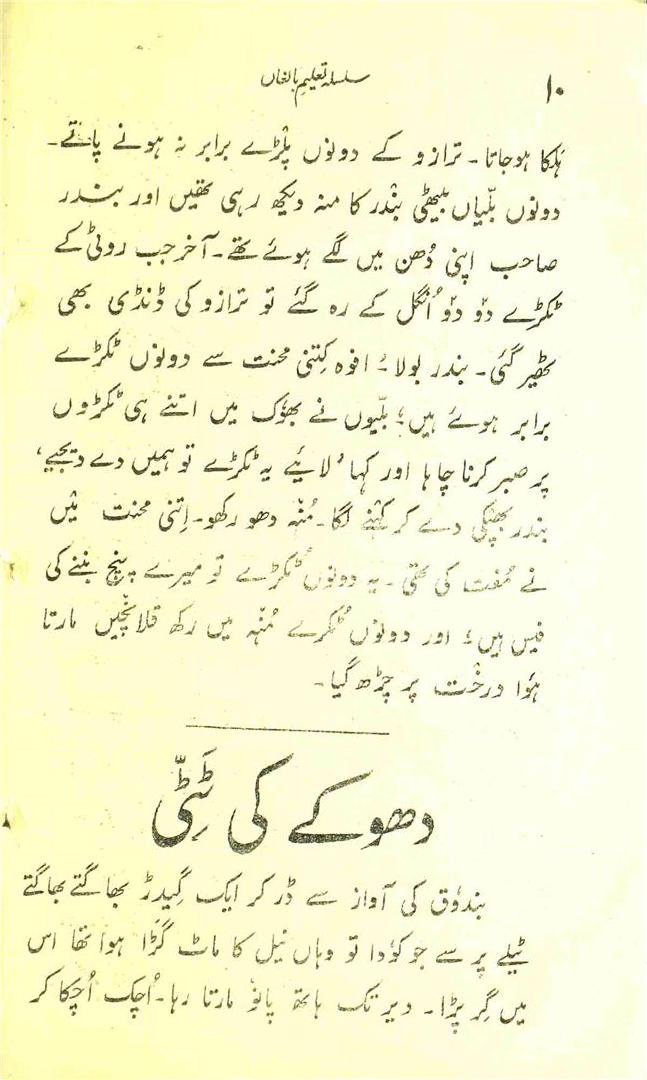 سلسلہ تعلیم بالغاں
۱۰
ہلکا ہوجاتا۔ ترازو کے دونوں پلڑے برابر نہ ہونے پاتے۔
دونوں بلّیاں بیٹھی بندر کا منہ دیکھ رہی تھیں اور بندر
صاحب اپنی دُھن میں لگے ہوئے تھے۔ آخر جب روٹی کے
ٹکڑے دو دو اُنگل کے رہ گئے تو ترازو کی ڈنڈی بھی
ٹھیر گئی۔ بندر بولا "افوہ کِتنی محنت سے دونوں ٹکڑے
برابر ہوئے ہیں" بلّیوں نے بھوک میں اتنے ہی ٹکڑوں
پر صبر کرنا چاہا اور کہا 'لایئے یہ ٹکڑے تو ہمیں دے دیجیے'
بندر بھپکی دے کر کہنے لگا۔ مُنہ دھو رکھو۔ اِتنی محنت میں
نے مُفت کی تھی۔ یہ دونوں ٹکڑے تو میرے پنچ بننے کی
فیس ہیں" اور دونوں ٹکڑے مُنہ میں رکھ قلانچیں مارتا
ہُوا درخت پر چڑھ گیا۔
دھوکے کی ٹَٹّی
بندوق کی آواز سے ڈر کر ایک گیدڑ بھاگتے بھاگتے
ٹیلے پر سے جو کودا تو وہاں نیل کا ماٹ گڑا ہوا تھا اس
میں گِر پڑا۔ دیر تک ہاتھ پانو مارتا رہا۔ اُچک اُچکا کر